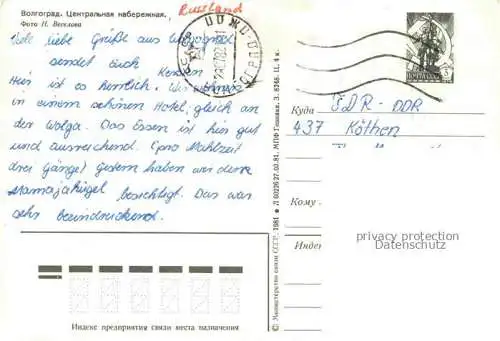 Russland
Волгоград. Центральная набережная.
Фото Н. Веселова
Viele liebe Grüße aus Wolgograd
sendet euch
Kerstin
Hier ist es herrlich. Wir wohnen
in einem schönen Hotel, gleich an
der Wolga. Das Essen ist hier gut
und ausreichend. (pro Mahlzeit
drei Gänge) Gestern haben wir den
Mamajahügel besichtigt. Das war
sehr beeindruckend.
Индекс предприятия связи места назначения
© Министерство связи СССР. 1981 ★ Л 00226 27.02.81. МПФ Гознака. З. 8366. Ц. 4 к.
Куда DDR-DDR
437 Köthen
Кому
Индекс
privacy protection
Datenschutz